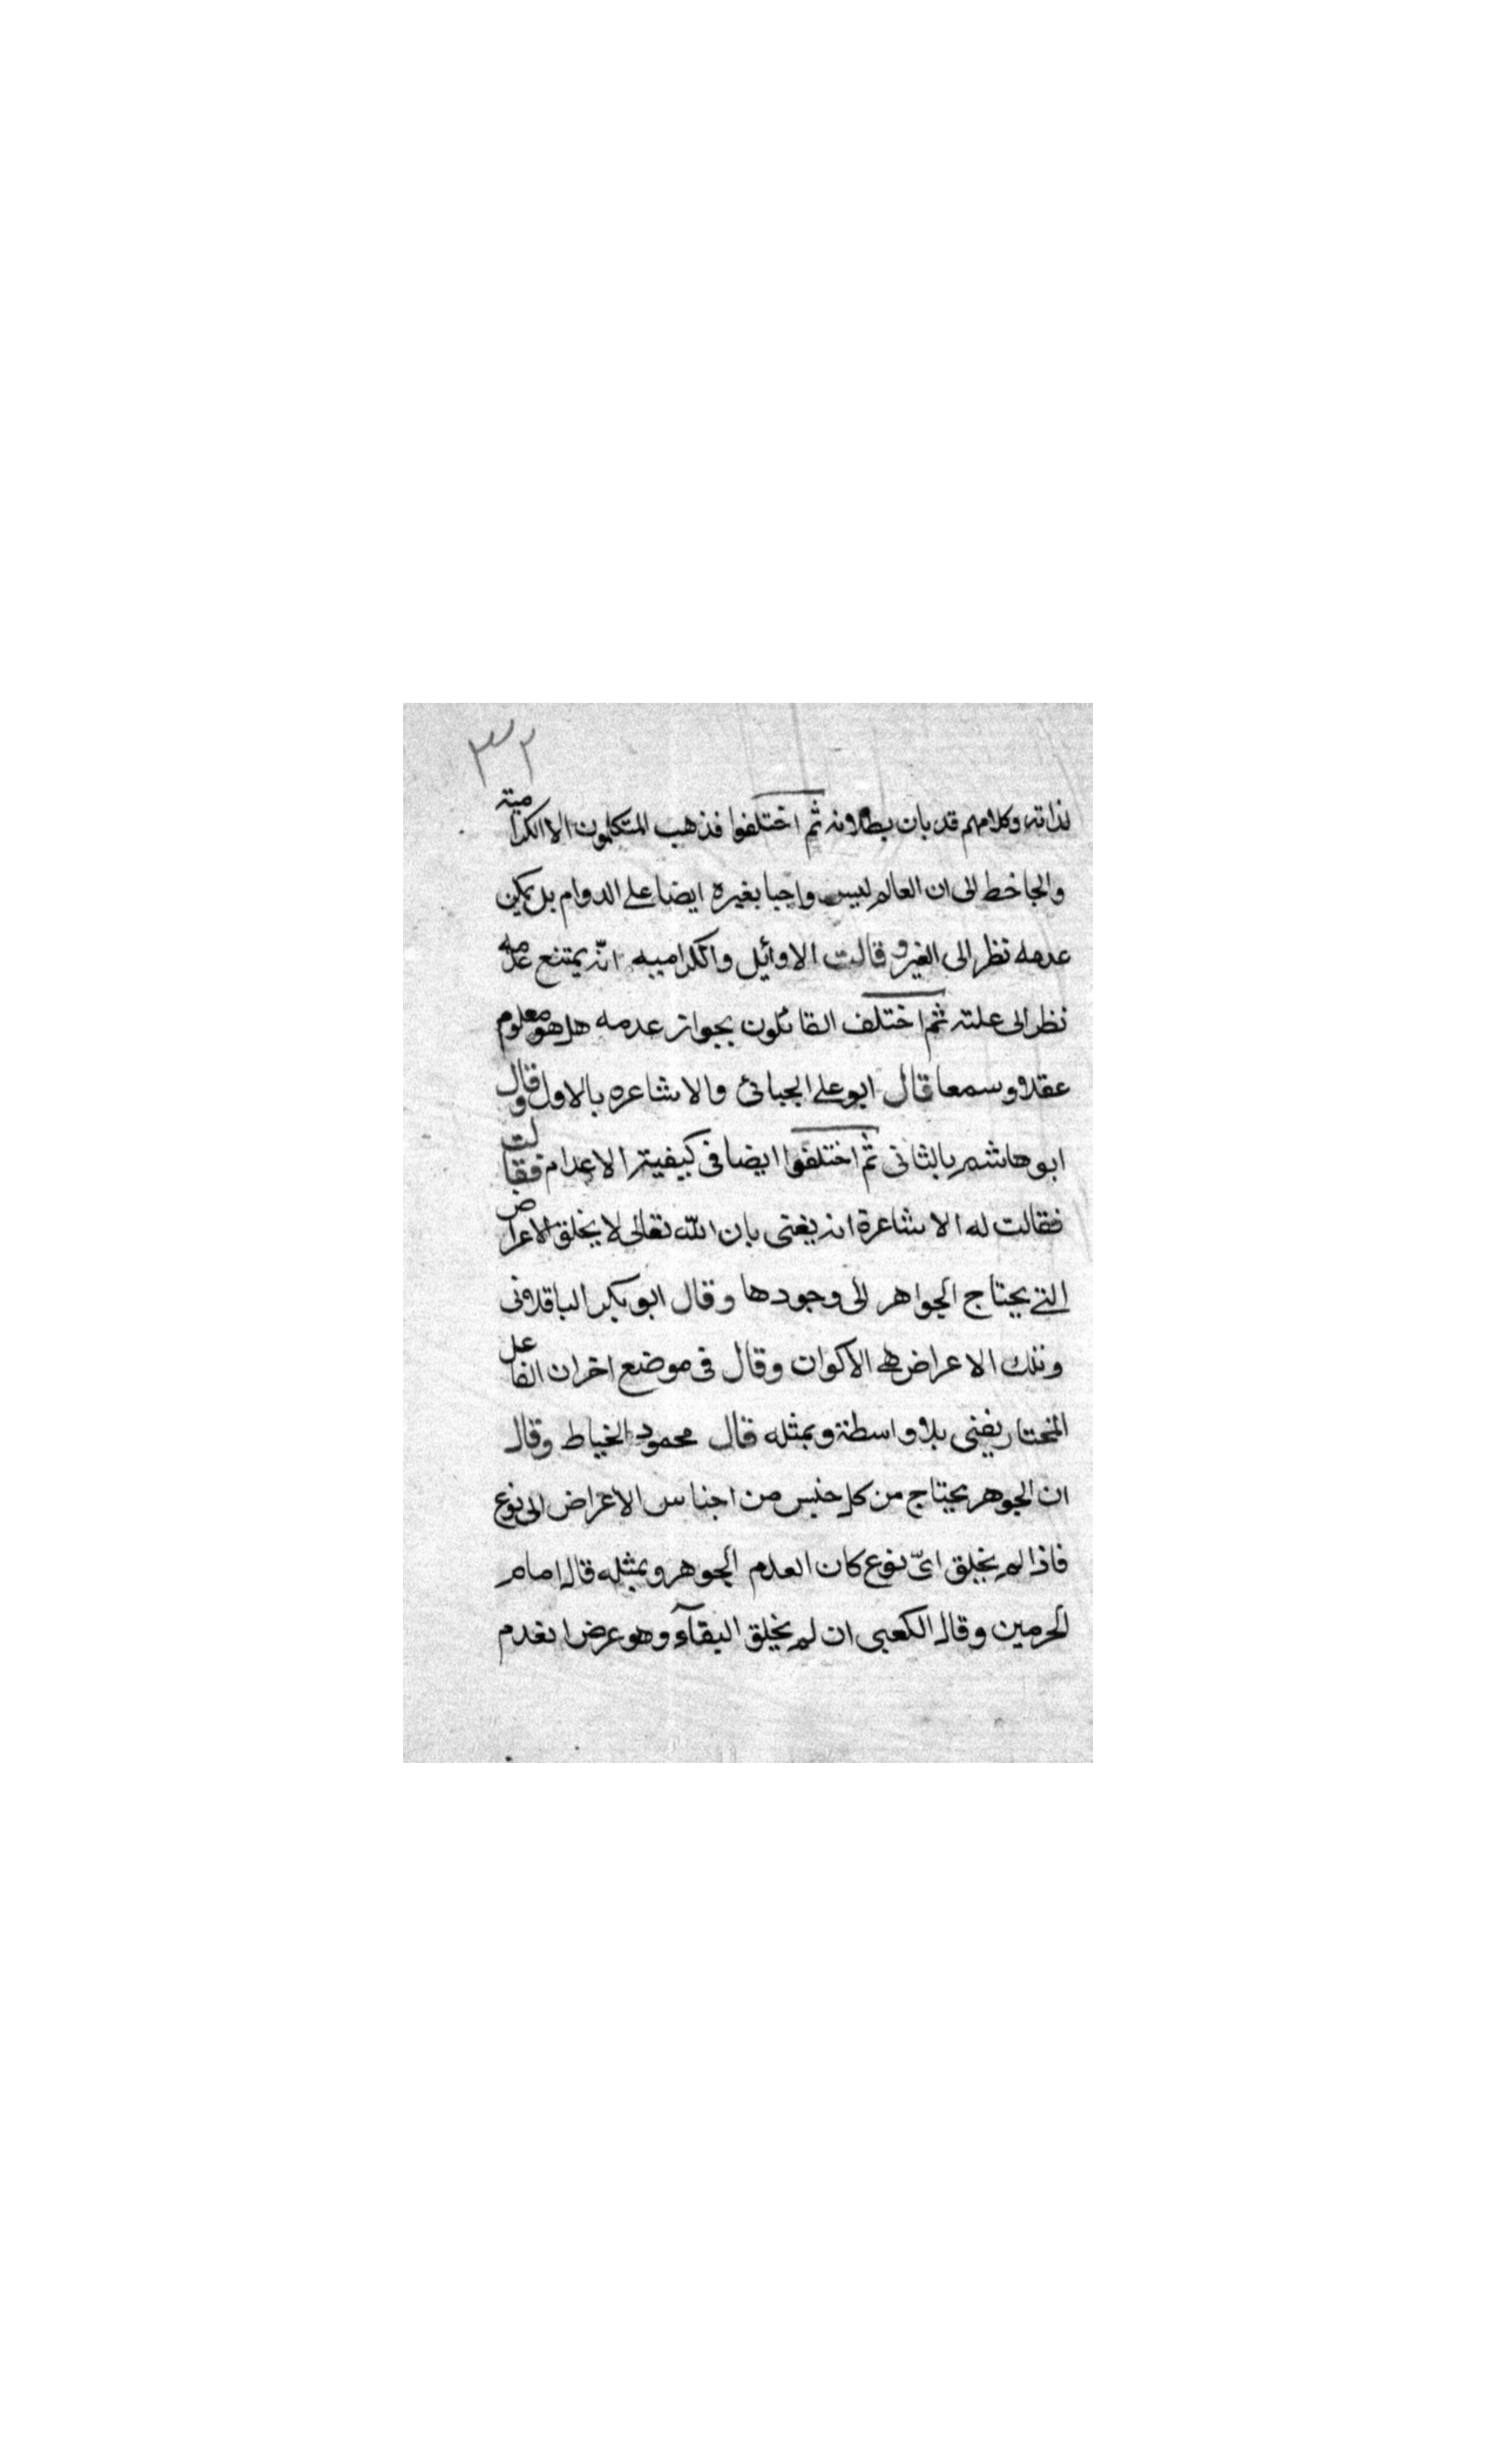 ٣٢
لذاته وكلامهم قد بان بطلانه ثم اختلفوا فذهب المتكلمون الا الكرامية
والجاخط الى ان العالم ليس واجبا بغيره ايضا على الدوام بل يمكن
عدمه نظر الى الغير و قالت الاوائل والكراميه انه يمتنع عدمه
نظر الى علته ثم اختلف القائلون بجواز عدمه هل هو معلوم
عقلا وسمعا قال ابو على الجبائى والاشاعره بالاول وقال
ابو هاشم بالثانى ثم اختلفوا ايضا فى كيفية الاعدام فقالت
فقالت له الاشاعرة انه يفنى بان الله تعالى لا يخلق الاعراض
التى يحتاج الجواهر الى وجودها وقال ابو بكر الباقلانى
وتلك الاعراض هى الاكوان وقال فى موضع اخر ان الفاعل
المختار يفنى بلا واسطة وبمثله قال محمود الخياط وقال
ان الجوهر يحتاج من كل جنس من اجناس الاعراض الى نوع
فاذا لم يخلق اىّ نوع كان العدم الجوهر وبمثله قال امام
الحرمين وقال الكعبى ان لم يخلق البقآء وهو عرض انعدم